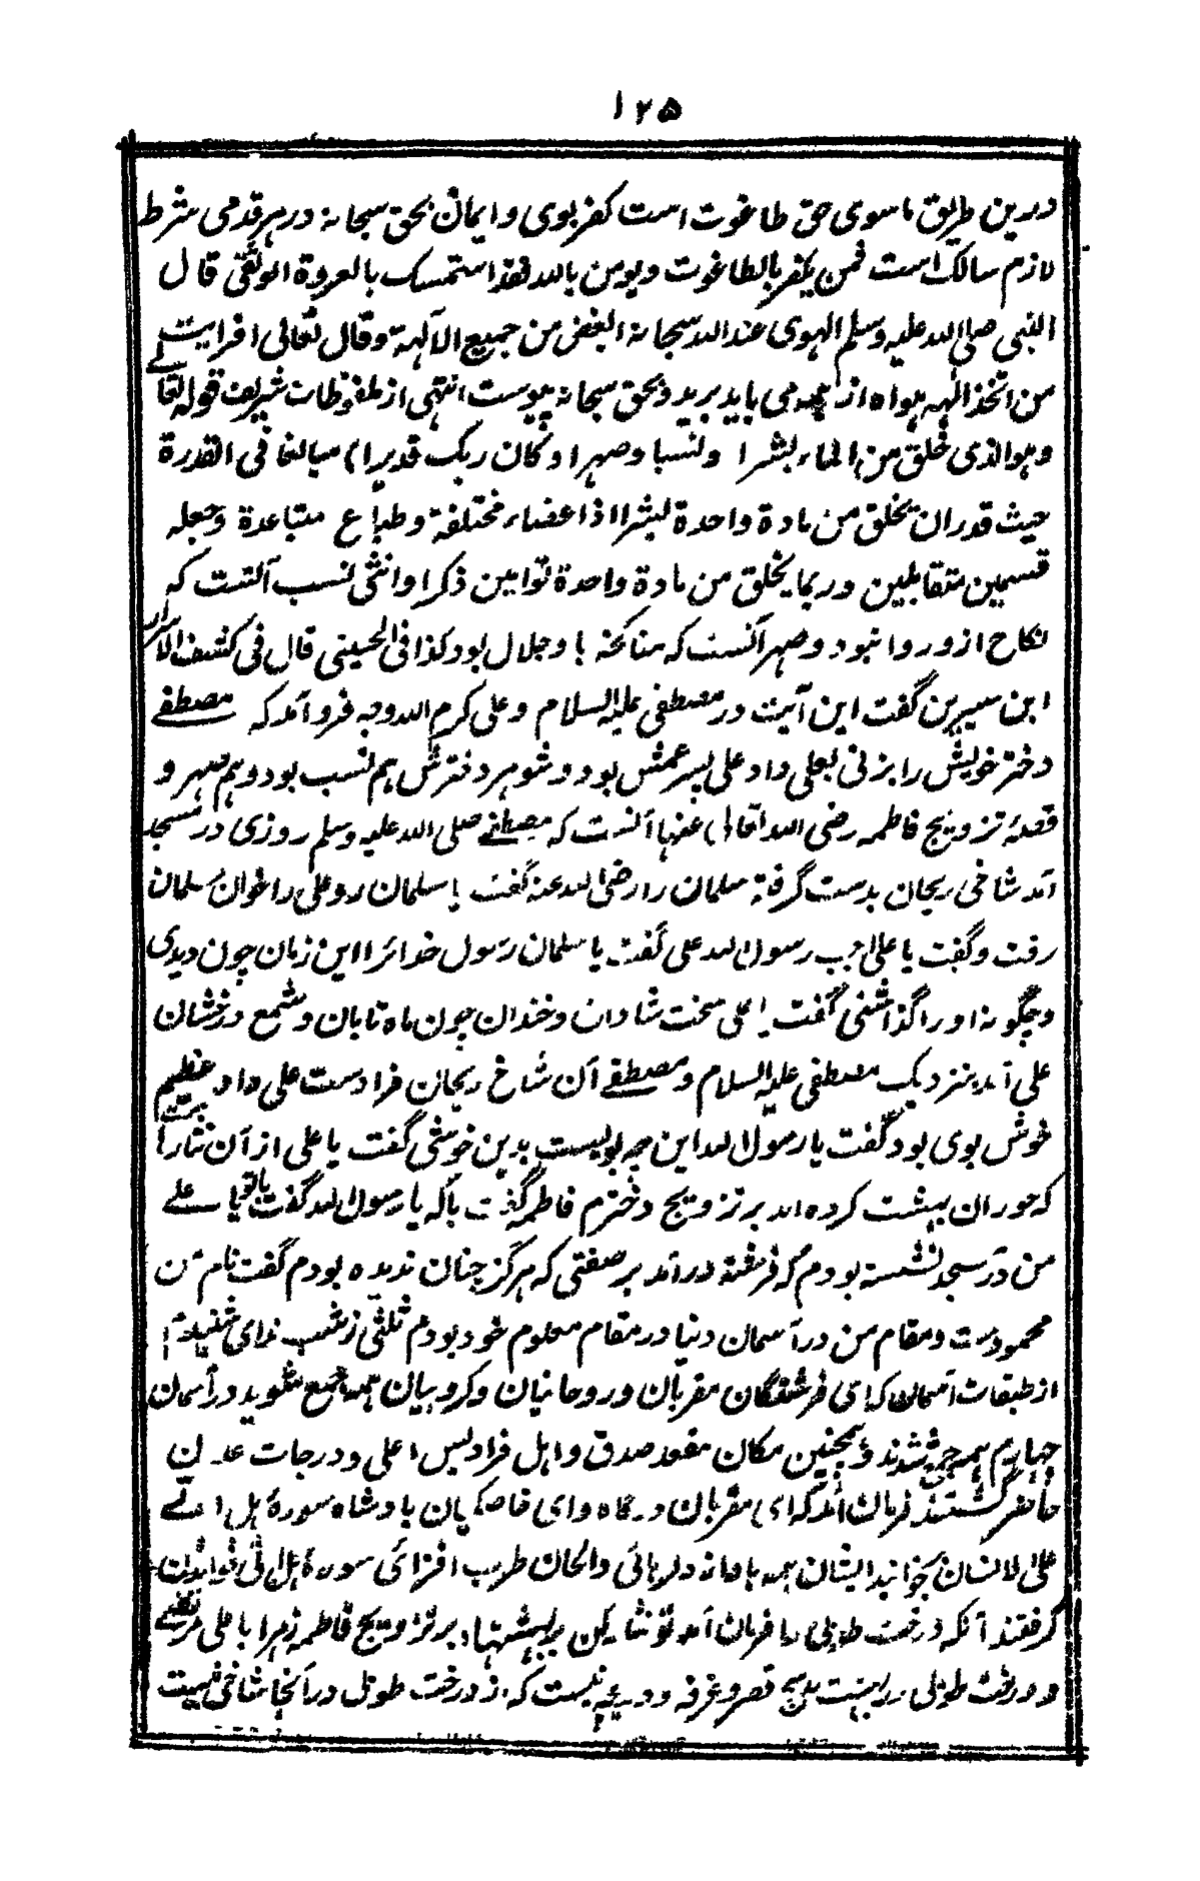 ۱۲۵
درین طریق ماسوی حق طاغوت است کفر بوی و ایمان بحق سبحانه در هر قدمی شرط
لازم سالک است فمن یکفر بالطاغوت ویومن بالله فقد استمسک بالعروة الوثقی قال
النبی صلی الله علیه وسلم الهوی عند الله سبحانه ابغض من جمیع الآلهة وقال تعالی افرایت
من اتخذ الهه هواه از همه می باید برید و بحق سبحانه پیوست انتهی از ملفوظات شریف قوله تعالے
وهو الذی خلق من الماء بشرا ونسبا وصهرا وکان ربک قدیرا) مبالغا فی القدرة
حیث قدر ان یخلق من مادة واحدة بشرا اذا عضاء مختلفة وطباع متباعدة وجعله
قسمین متقابلین وربما یخلق من مادة واحدة توامین ذکرا وانثی نسب آنست که
نکاح از و روا نبود وصهر آنست که مناکحه با و حلال بود کذا فی الحسینی قال فی کشف الاسرار
ابن سیرین گفت این آیت در مصطفی علیه السلام و علی کرم الله وجه فرو آمد که مصطفے
دختر خویش را بزنی بعلی داد علی پسر عمش بود و شوهر دخترش هم نسب بود و هم صهر و
قصهٔ تزویج فاطمه رضی الله تعالی عنها آنست که مصطفے صلی الله علیه وسلم روزی در مسجد
آمد شاخی ریحان بدست گرفته سلمان را رضی الله عنه گفت یا سلمان رو علی را خوان سلمان
رفت و گفت یا علی اجب رسول الله علی گفت یا سلمان رسول خدائرا این زمان چون دیدی
وچگونه اورا گذاشتی گفت یا علی سخت شادان وخندان چون ماه تابان وشمع درخشان
علی آمد بنزدیک مصطفی علیه السلام و مصطفے آن شاخ ریحان فرادست علی داد عظیم
خوش بوی بود گفت یا رسول الله این چه بویست بدین خوشی گفت یا علی از آن نثارا
که حوران بهشت کرده اند بر تزویج دخترم فاطمه گفت باکه یا رسول الله گفت باتو یا علے
من در مسجد نشسته بودم که فرشته درآمد بر صفتی که هرگز چنان ندیده بودم گفت نام من
محمودست ومقام من در آسمان دنیا در مقام معلوم خود بودم ثلثی ز شب ندای شنیدم
از طبقات آسمان که ای فرشتگان مقربان وروحانیان وکروبیان همه جمع شوید در آسمان
چهارم همه جمع شدند وهمچنین مکان مقعد صدق واهل فرادیس اعلی ودرجات عدن
حاضر گشتند فرمان آمد که ای مقربان درگاه وای خاصگیان بادشاه سورهٔ هل اتے
علی الانسان بخوانید ایشان همه باواز دلربائی والحان طرب افزائی سورهٔ هل اتی خواندن
گرفتند آنکه درخت طوبی را فرمان آمد تو نثار کن بر بهشتها بر تزویج فاطمه زهرا با علی مرتضے
ودرخت طوبی در بهشت هیچ قصر وغرفه ودریچه نیست که از درخت طوبی در آنجا شاخی نیست